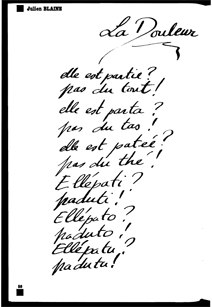 Julien BLAINE
La Douleur
elle est partie ?
pas du tout !
elle est parta ?
pas du tao !
elle est patiée ?
pas du thé !
Ellépati ?
paduti !
Ellépato ?
paduto !
Ellépatu ?
padutu !